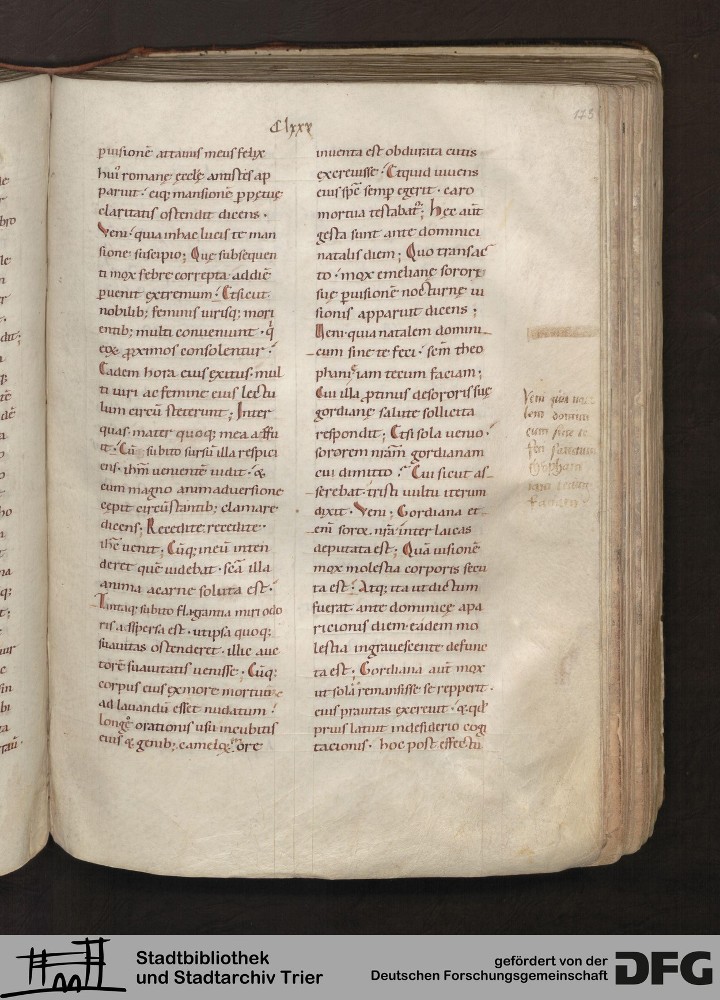 Clxxv
173
puisionē attauus meus felix
hui' romanę ecclę antistes ap
paruit · eiq; mansionē ppetuę
claritatis ostendit dicens ·
Veni · quia in hac lucis te man
sione suscipio; Quę subsequen
ti mox febre correpta · ad diē
puenit extremum · Et sicut
nobilib; feminis uirisq; mori
entib; multi conueniunt · q̇
eoꝝ proximos consolentur ·
Eadem hora eius exitus · mul
ti uiri ac femine eius lectu
lum circū steterunt; Inter
quas · mater quoq; mea affu
it · Cū subito sursū illa respici
ens · ihm uenientē uidit · &
cum magno animaduersione
cepit circūstantib; clamare
dicens; Recedite recedite ·
ihc uenit; Cūq; in eū inten
deret quē uidebat · scā illa
anima a carne soluta est ·
Tantaq; subito flagrantia miri odo
ris aspersa est · ut ipsa quoq;
suauitas ostenderet · illic auc
torē suauitatis uenisse · Cūq;
corpus eius ex more mortuorū
ad lauandū esset nudatum ·
longe orationis usu in cubitis
eius & genib; cameloꝝ more
inuenta est obdurata cutis
excreuisse · Et quid uiuens
eius spc semp egerit · caro
mortua testabat'; Hec aūt
gesta sunt ante dominici
natalis diem; Quo transac
to · mox emelianę sorori
suę puisione nocturnę ui
sionis apparuit dicens;
Veni · quia natalem domini
cum sine te feci · scm theo
phanię iam tecum faciam;
Cui illa protinus de sororis suę
gordianę salute sollicita
respondit; Et si sola uenio ·
sororem nrām gordianam
cui dimitto · Cui sicut as
serebat · tristi uultu iterum
dixit · Veni; Gordiana et
enī soror nrā inter laicas
deputata est; Quā uisionē
mox molestia corporis secu
ta est · Atq; ita ut dictum
fuerat · ante dominicę apa
ricionis diem · eadem mo
lestia ingrauescente defunc
ta est · Gordiana aūt mox
ut solā remansisse se repperit ·
eius prauitas excreuit · & qd
prius latuit in desiderio cogi
tacionis · hoc post effectū
Veni quia na
lem domini
cum sine te
theophani
iam tecum
faciam
Stadtbibliothek
und Stadtarchiv Trier
gefördert von der
Deutschen Forschungsgemeinschaft
DFG